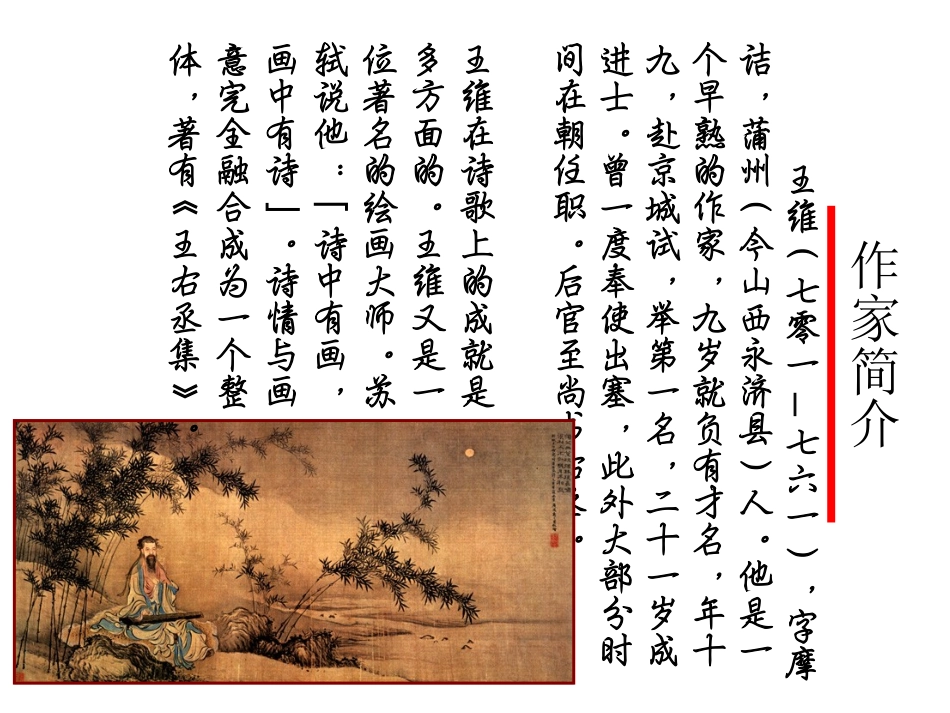 作家简介
王维（七零一—七六一），字摩
诘，蒲州（今山西永济县）人。他是一
个早熟的作家，九岁就负有才名，年十
九，赴京城试，举第一名，二十一岁成
进士。曾一度奉使出塞，此外大部分时
间在朝任职。后官至尚书右丞。
王维在诗歌上的成就是
多方面的。王维又是一
位著名的绘画大师。苏
轼说他：「诗中有画，
画中有诗」。诗情与画
意完全融合成为一个整
体，著有《王右丞集》。